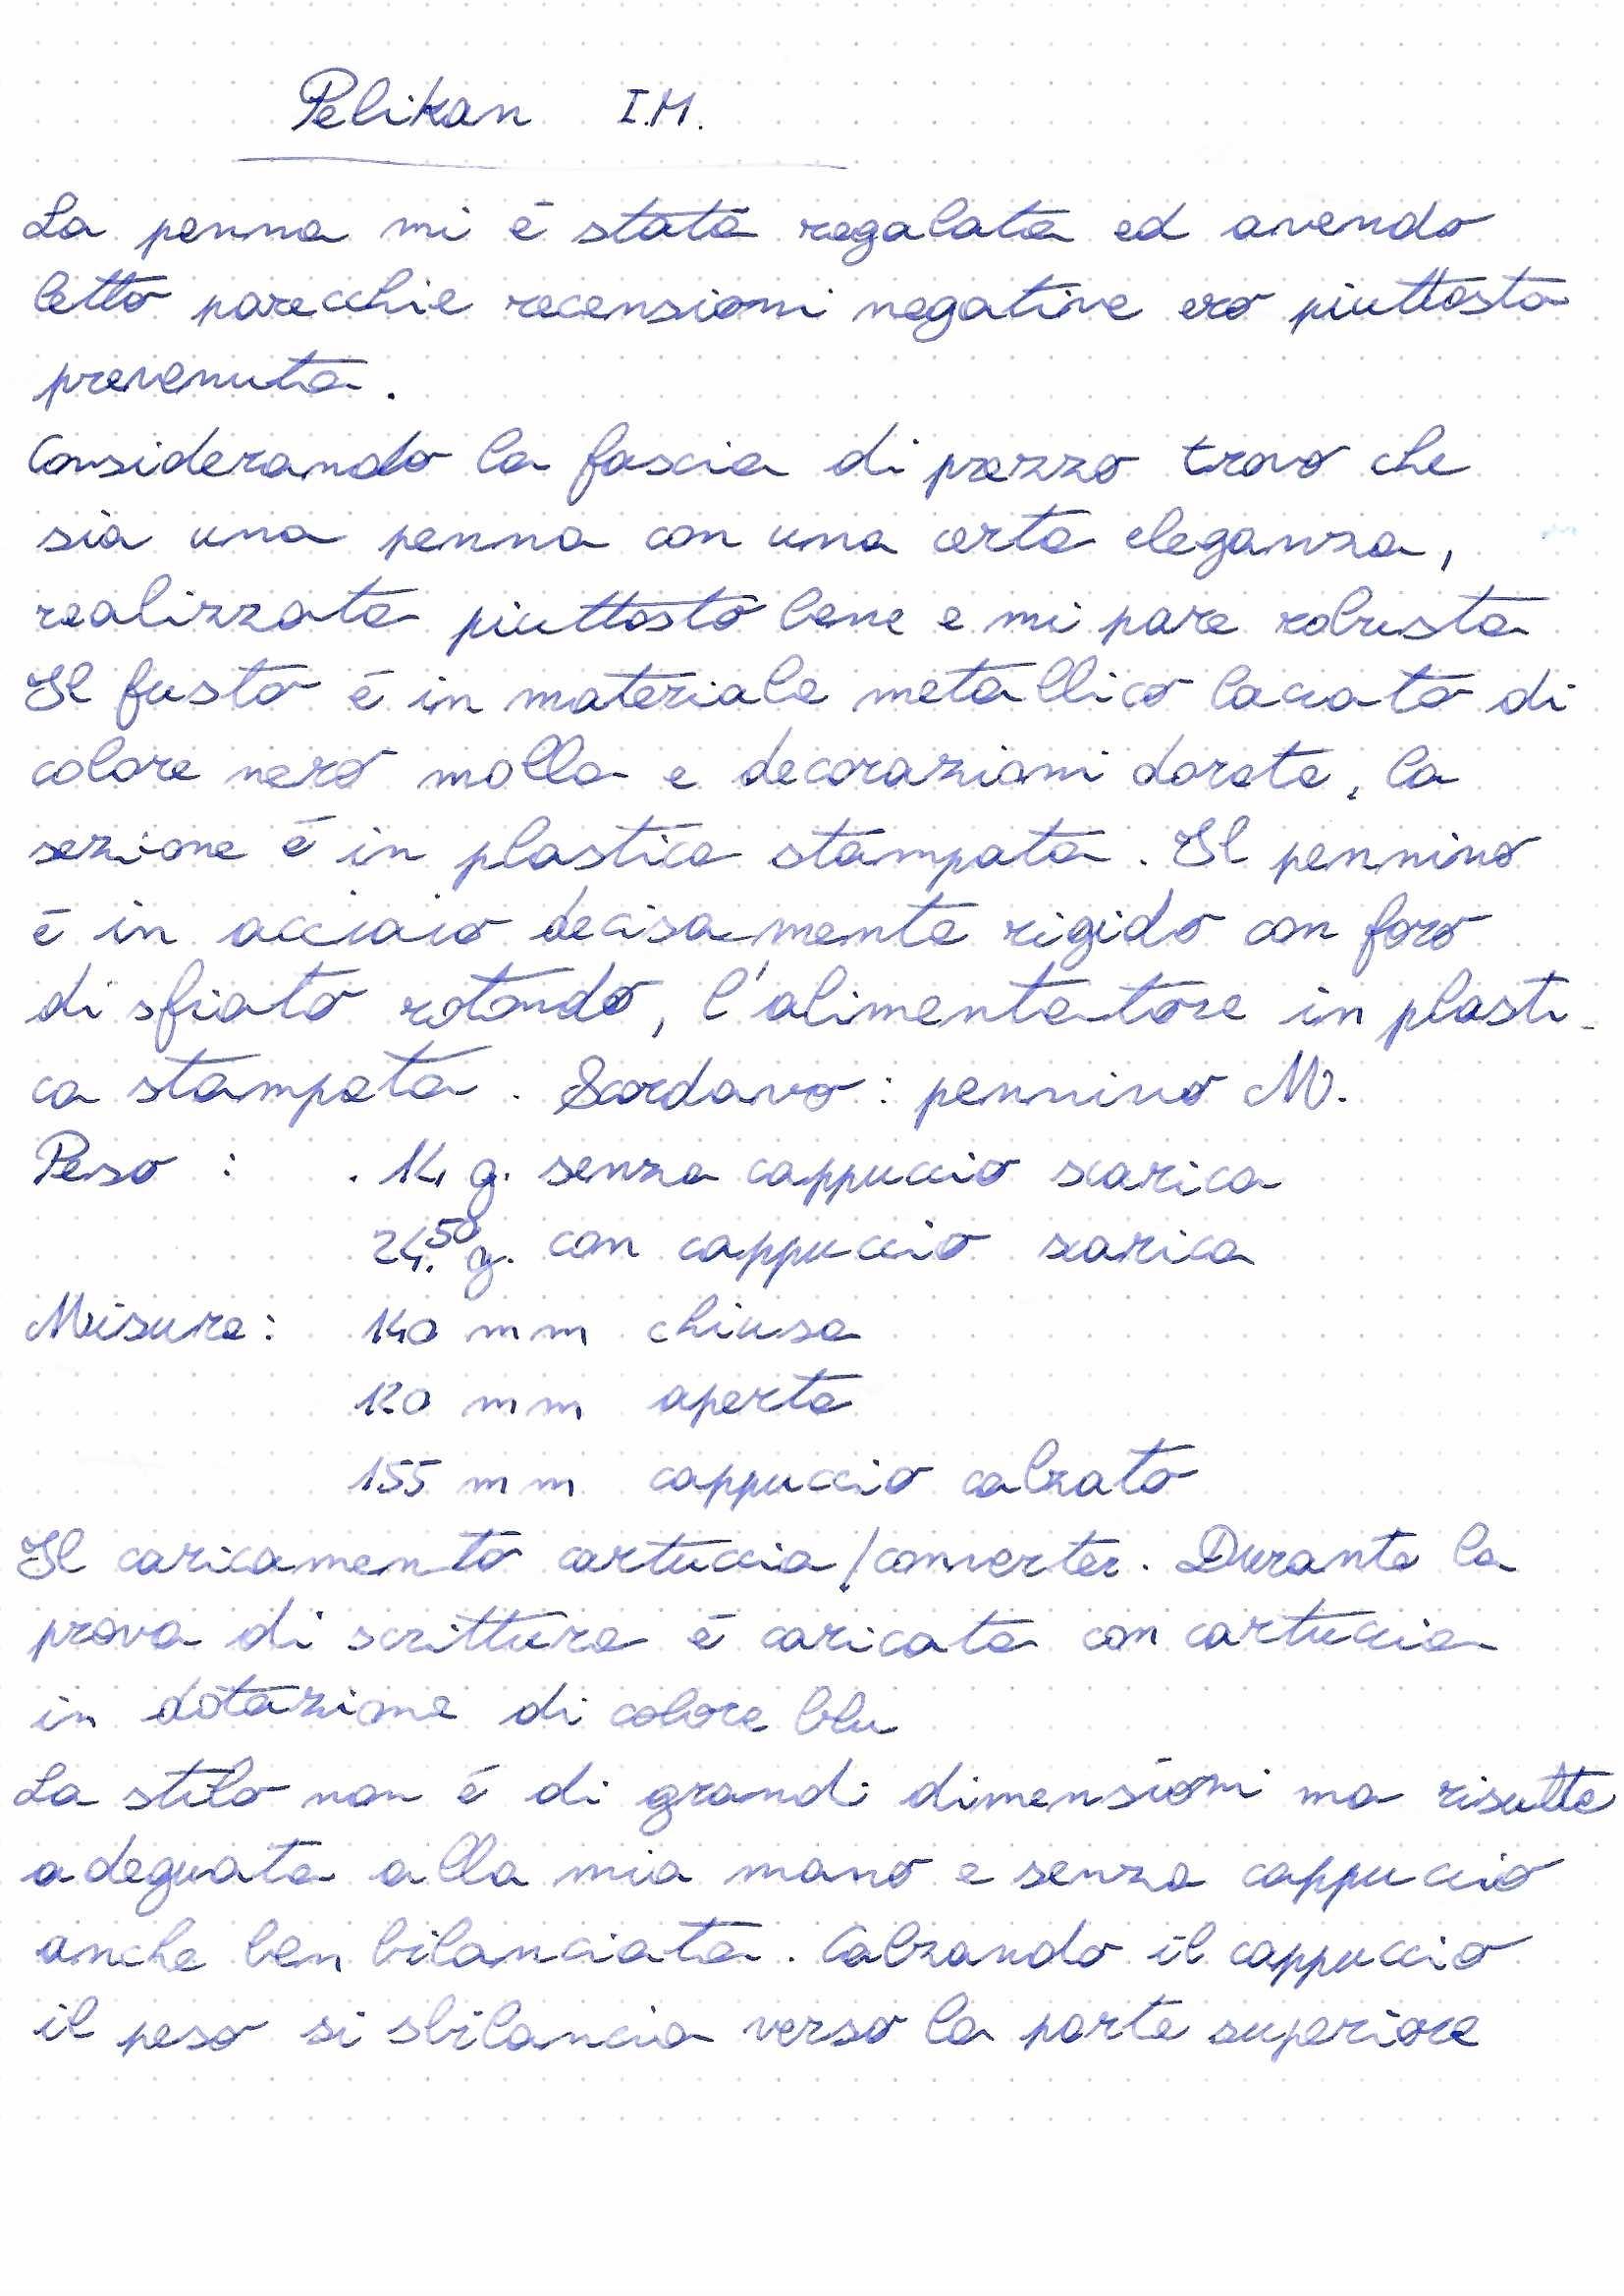 Pelikan I.M.
La penna mi è stata regalata ed avendo
letto parecchie recensioni negative ero piuttosto
prevenuta.
Considerando la fascia di prezzo trovo che
sia una penna con una certa eleganza,
realizzata piuttosto bene e mi pare robusta
Il fusto è in materiale metallico laccato di
colore nero molla e decorazioni dorate, la
sezione è in plastica stampata. Il pennino
è in acciaio decisamente rigido con foro
di sfiato rotondo, l'alimentatore in plasti-
ca stampata. Scordavo: pennino M.
Peso : . 14 g. senza cappuccio scarica
24.50 g. con cappuccio scarica
Misure: 140 mm chiusa
120 mm aperta
155 mm cappuccio calzato
Il caricamento cartuccia/converter. Durante la
prova di scrittura è caricata con cartuccia
in dotazione di colore blu
La stilo non è di grandi dimensioni ma risulta
adeguata alla mia mano e senza cappuccio
anche ben bilanciata. Calzando il cappuccio
il peso si sbilancia verso la parte superiore